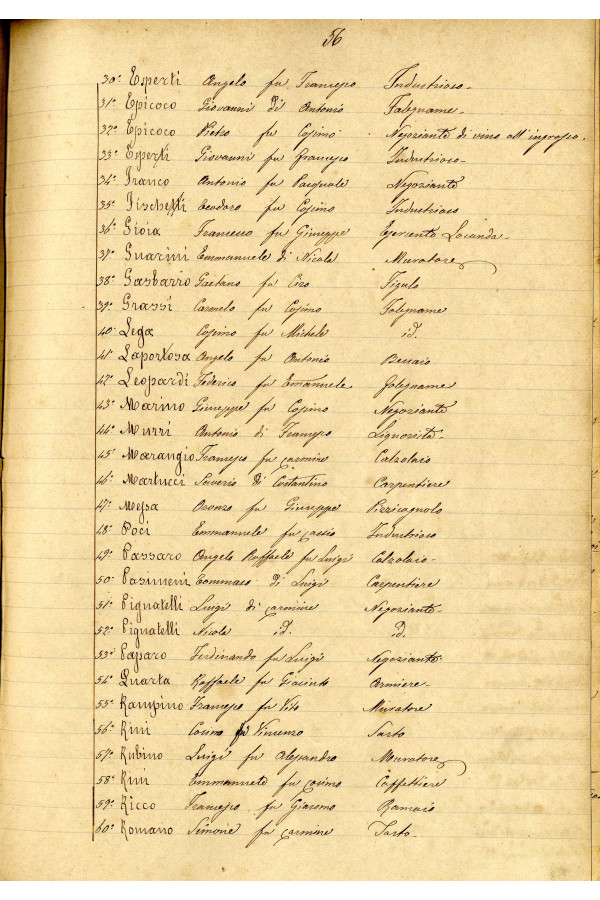 56
30° Esperti Angelo fu Francesco Industrioso
31° Epicoco Giovanni di Antonio Falegname
32° Epicoco Pietro fu Cosimo Negoziante di vino all'ingrosso
33° Esperti Giovanni fu Francesco Industrioso
34° Franco Antonio fu Pasquale Negoziante
35° Fischetti Teodoro fu Cosimo Industrioso
36° Gioia Francesco fu Giuseppe Esercente Locanda
37° Guarini Emmanuele di Nicola Muratore
38° Gasbarro Gaetano fu Ciro Figulo
39° Grassi Carmelo fu Cosimo Falegname
40° Lega Cosimo fu Michele id.
41° Laportosa Angelo fu Antonio Beccaio
42° Leopardi Federico fu Emanuele Falegname
43° Marino Giuseppe fu Cosimo Negoziante
44° Murri Antonio di Francesco Liquorista
45° Marangio Francesco fu Carmine Calzolaio
46° Martucci Saverio di Costantino Carpentiere
47° Messa Oronzo fu Giuseppe Pizzicagnolo
48° Poci Emmanuele fu Cassio Industrioso
49° Passaro Angelo Raffaele fu Luigi Calzolaio
50° Pasimeni Tommaso di Luigi Carpentiere
51° Pignatelli Luigi di Carmine Negoziante
52° Pignatelli Nicola id. id.
53° Paparo Ferdinando fu Luigi Negoziante
54° Quarta Raffaele fu Giacinto Armiere
55° Rampino Francesco fu Vito Muratore
56° Rini Cosimo fu Vincenzo Sarto
57° Rubino Luigi fu Alessandro Muratore
58° Rini Emmanuele fu Cosimo Caffettiere
59° Ricco Francesco fu Giacomo Ramaio
60° Romano Simone fu Carmine Sarto